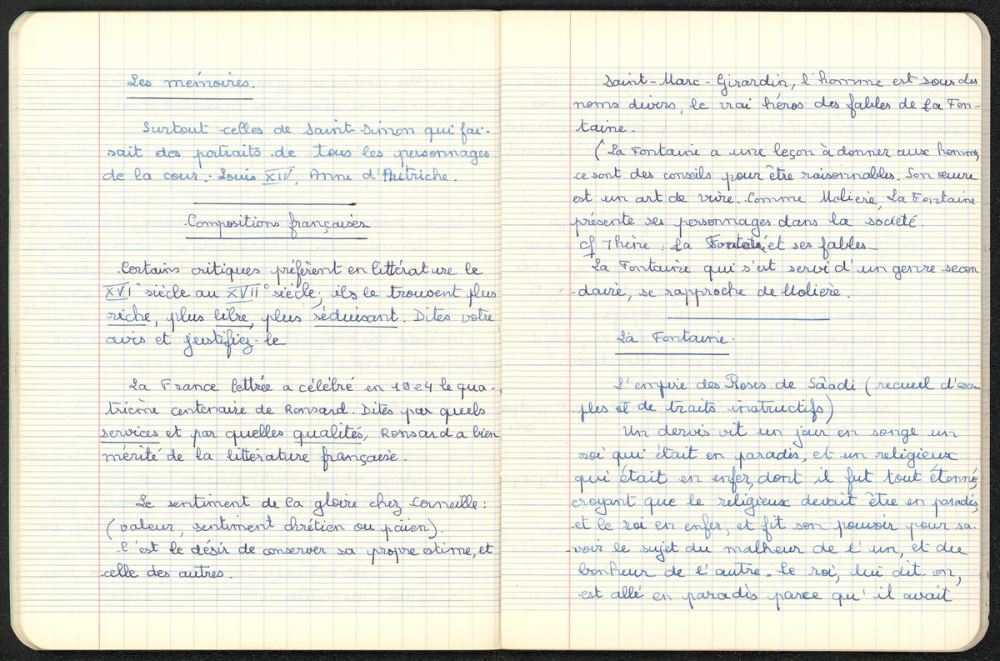 Les mémoires.
Surtout celles de Saint-Simon qui fai-
sait des portraits de tous les personnages
de la cour : Louis XIV, Anne d'Autriche.
Compositions françaises
Certains critiques préfèrent en littérature le
XVI° siècle au XVII° siècle, ils le trouvent plus
riche, plus libre, plus séduisant. Dites votre
avis et justifiez-le
La France lettrée a célébré en 1924 le qua-
trième centenaire de Ronsard. Dites par quels
services et par quelles qualités, Ronsard a bien
mérité de la littérature française.
Le sentiment de la gloire chez Corneille :
(valeur, sentiment chrétien ou païen).
C'est le désir de conserver sa propre estime, et
celle des autres.
Saint-Marc-Girardin, l'homme est sous des
noms divers, le vrai héros des fables de La Fon-
taine.
(La Fontaine a une leçon à donner aux hommes,
ce sont des conseils pour être raisonnables. Son œuvre
est un art de vivre. Comme Molière, La Fontaine
présente ses personnages dans la société.
cf Thène : La Fontaine, et ses fables
La Fontaine qui s'est servi d'un genre secon
daire, se rapproche de Molière.
La Fontaine.
L'empire des Roses de Sâadi (recueil d'exem
ples et de traits instructifs)
Un dervis vit un jour en songe un
roi qui était en paradis, et un religieux
qui était en enfer, dont il fut tout étonné,
croyant que le religieux devait être en paradis,
et le roi en enfer, et fit son pouvoir pour sa-
voir le sujet du malheur de l'un, et du
bonheur de l'autre. Le roi, lui dit-on,
est allé en paradis parce qu'il avait